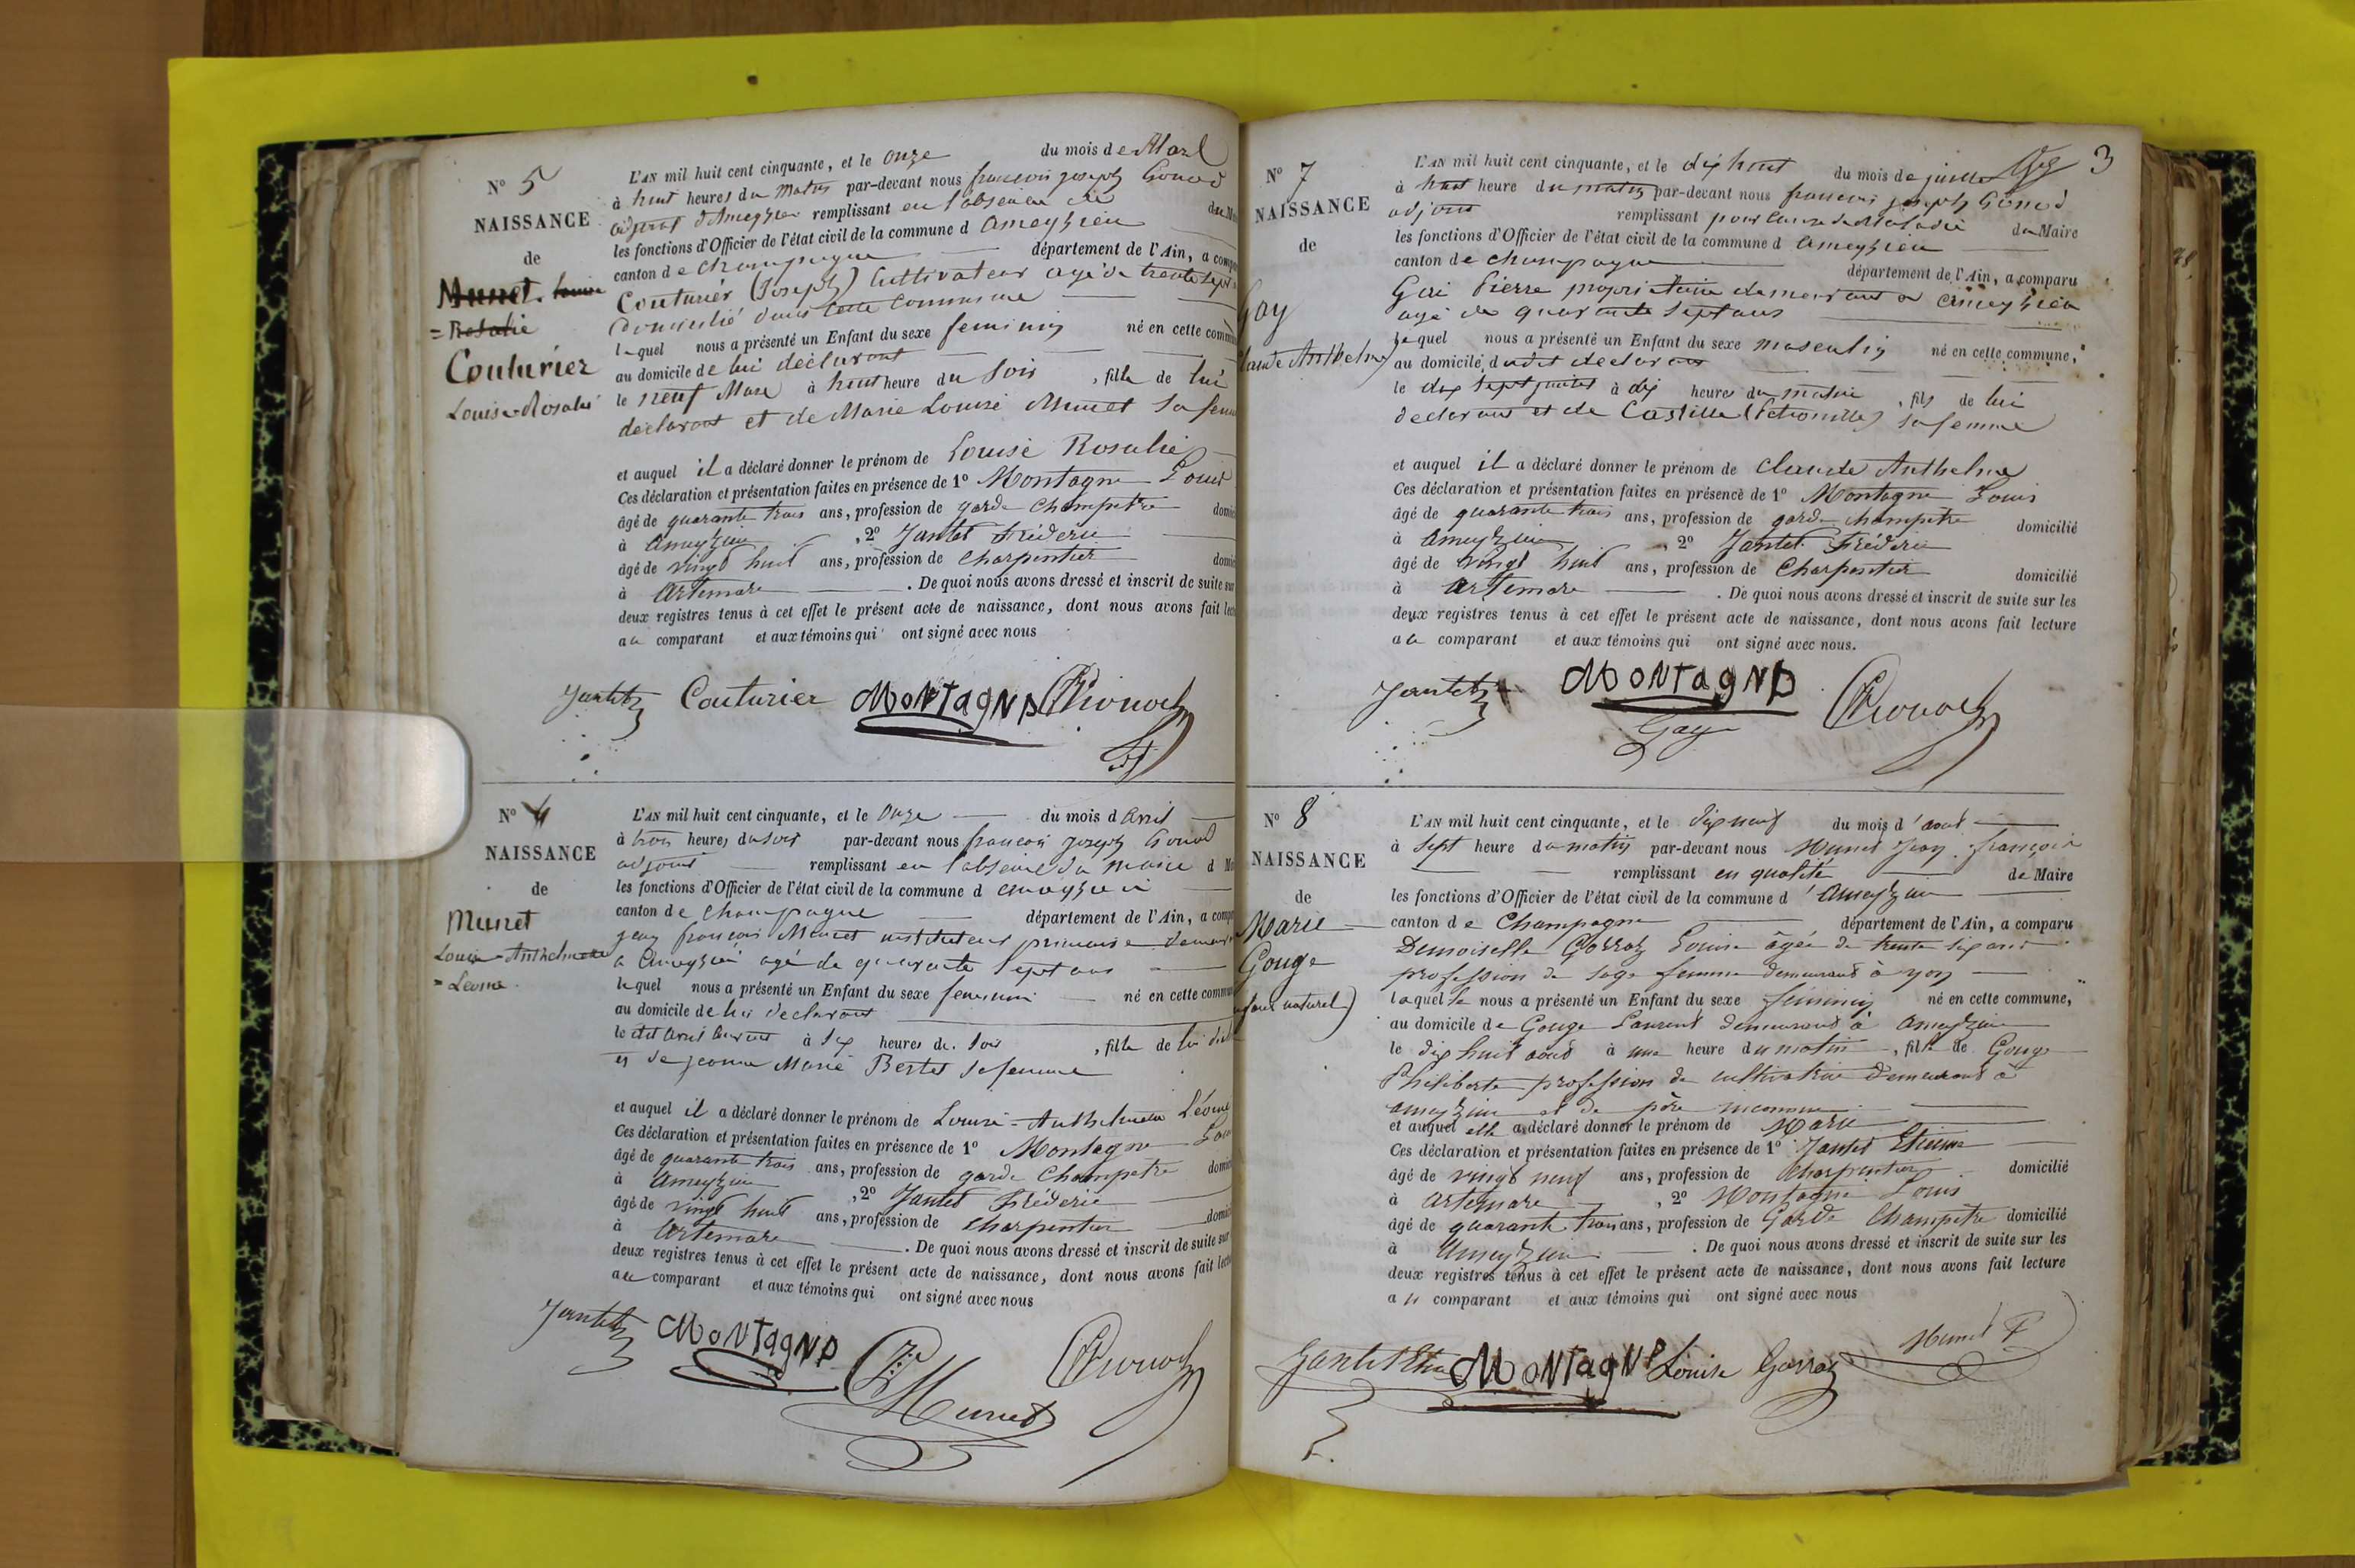 N° 5
NAISSANCE
de
Munet Louise
= Rosalie
Couturier
Louise-Rosalie
L'AN mil huit cent cinquante, et le onze du mois de Mars
à huit heures du matin par-devant nous françois joseph Gonod
adjoint d'Ameyzieu remplissant en l'absence de
les fonctions d'Officier de l'état civil de la commune d ameyzieu
canton de champagne département de l'Ain, a comp
Couturier (Joseph) Cultivateur agé de trente sept
domicilié dans cette commune
lequel nous a présenté un Enfant du sexe feminin né en cette comm
au domicile de lui déclarant
le neuf Mars à huit heure du soir, fille de lui
déclarant et de Marie Louise Munet sa fem
et auquel il a déclaré donner le prénom de Louise Rosalie
Ces déclaration et présentation faites en présence de 1° Montagne Louis
âgé de quarante trois ans, profession de garde champetre domic
à ameyzieu, 2° Jantet Fréderic
âgé de vingt huit ans, profession de charpentier domic
à Artemare. De quoi nous avons dressé et inscrit de suite sur
deux registres tenus à cet effet le présent acte de naissance, dont nous avons fait lec
au comparant et aux témoins qui ont signé avec nous
Jantet Couturier MONTAGNE Gonod
N°
NAISSANCE
de
Munet
Louise-Anthelmette
= Léonie
L'AN mil huit cent cinquante, et le onze du mois d avril
à trois heures du soir par-devant nous françois joseph Gonod
adjoint remplissant en l'absence du maire d
les fonctions d'Officier de l'état civil de la commune d ameyzieu
canton de champagne département de l'Ain, a comp
jean françois Munet instituteur primaire demeur
a ameyzieu agé de quarante sept ans
lequel nous a présenté un Enfant du sexe feminin né en cette commu
au domicile de lui declarant
le dit avril à six heures du soir, fille de lui
et de jeanne Marie Bertet sa femme
et auquel il a déclaré donner le prénom de Louise-Anthelmette Léonie
Ces déclaration et présentation faites en présence de 1° Montagne Lou
âgé de quarante trois ans, profession de garde champetre domic
à ameyzieu, 2° Jantet Fréderic
âgé de vingt huit ans, profession de charpentier domic
à Artemare. De quoi nous avons dressé et inscrit de suite sur
deux registres tenus à cet effet le présent acte de naissance, dont nous avons fait lect
au comparant et aux témoins qui ont signé avec nous
Jantet MONTAGNE Munet Gonod
3
N° 7
NAISSANCE
de
Gay
Claude Anthelme
L'AN mil huit cent cinquante, et le dix huit du mois de juillet
à huit heure du matin par-devant nous francois joseph Gonod
adjoint remplissant pour cause de Maladie du Maire
les fonctions d'Officier de l'état civil de la commune d ameyzieu
canton de champagne département de l'Ain, a comparu
Gai Pierre proprietaire demeurant a ameyzieu
agé de quarante sept ans
lequel nous a présenté un Enfant du sexe masculin né en cette commune,
au domicile dudit declarant
le dix sept juillet à dix heures du matin, fils de lui
declarant et de Castille (Petronille) sa femme
et auquel il a déclaré donner le prénom de Claude Anthelme
Ces déclaration et présentation faites en présence de 1° Montagne Louis
âgé de quarante trois ans, profession de garde champetre domicilié
à ameyzieu, 2° Jantet Fréderic
âgé de vingt huit ans, profession de Charpentier domicilié
à Artemare. De quoi nous avons dressé et inscrit de suite sur les
deux registres tenus à cet effet le présent acte de naissance, dont nous avons fait lecture
au comparant et aux témoins qui ont signé avec nous.
Jantet MONTAGNE Gonod
Gay
N° 8
NAISSANCE
de
Marie
Gouge
naturel)
L'AN mil huit cent cinquante, et le dix neuf du mois d'août
à sept heure du matin par-devant nous Munet Jean françois
remplissant en qualité de Maire
les fonctions d'Officier de l'état civil de la commune d'Ameyzieu
canton de Champagne département de l'Ain, a comparu
Demoiselle Gorraz Louise âgée de trente six ans
profession de sage femme demeurant à yon
laquelle nous a présenté un Enfant du sexe féminin né en cette commune,
au domicile de Gouge Laurent demeurant à ameyzieu
le dix huit août à une heure du matin, fille de Gouge
Philiberte profession de cultivatrice demeurant à
ameyzieu et de père inconnu
et auquel elle a déclaré donner le prénom de Marie
Ces déclaration et présentation faites en présence de 1° Jantet Etienne
âgé de vingt neuf ans, profession de charpentier domicilié
à artemare, 2° Montagne Louis
âgé de quarante trois ans, profession de Garde Champetre domicilié
à Ameyzieu. De quoi nous avons dressé et inscrit de suite sur les
deux registres tenus à cet effet le présent acte de naissance, dont nous avons fait lecture
au comparant et aux témoins qui ont signé avec nous
Jantet Etne MONTAGNE Louise Gorraz Munet F